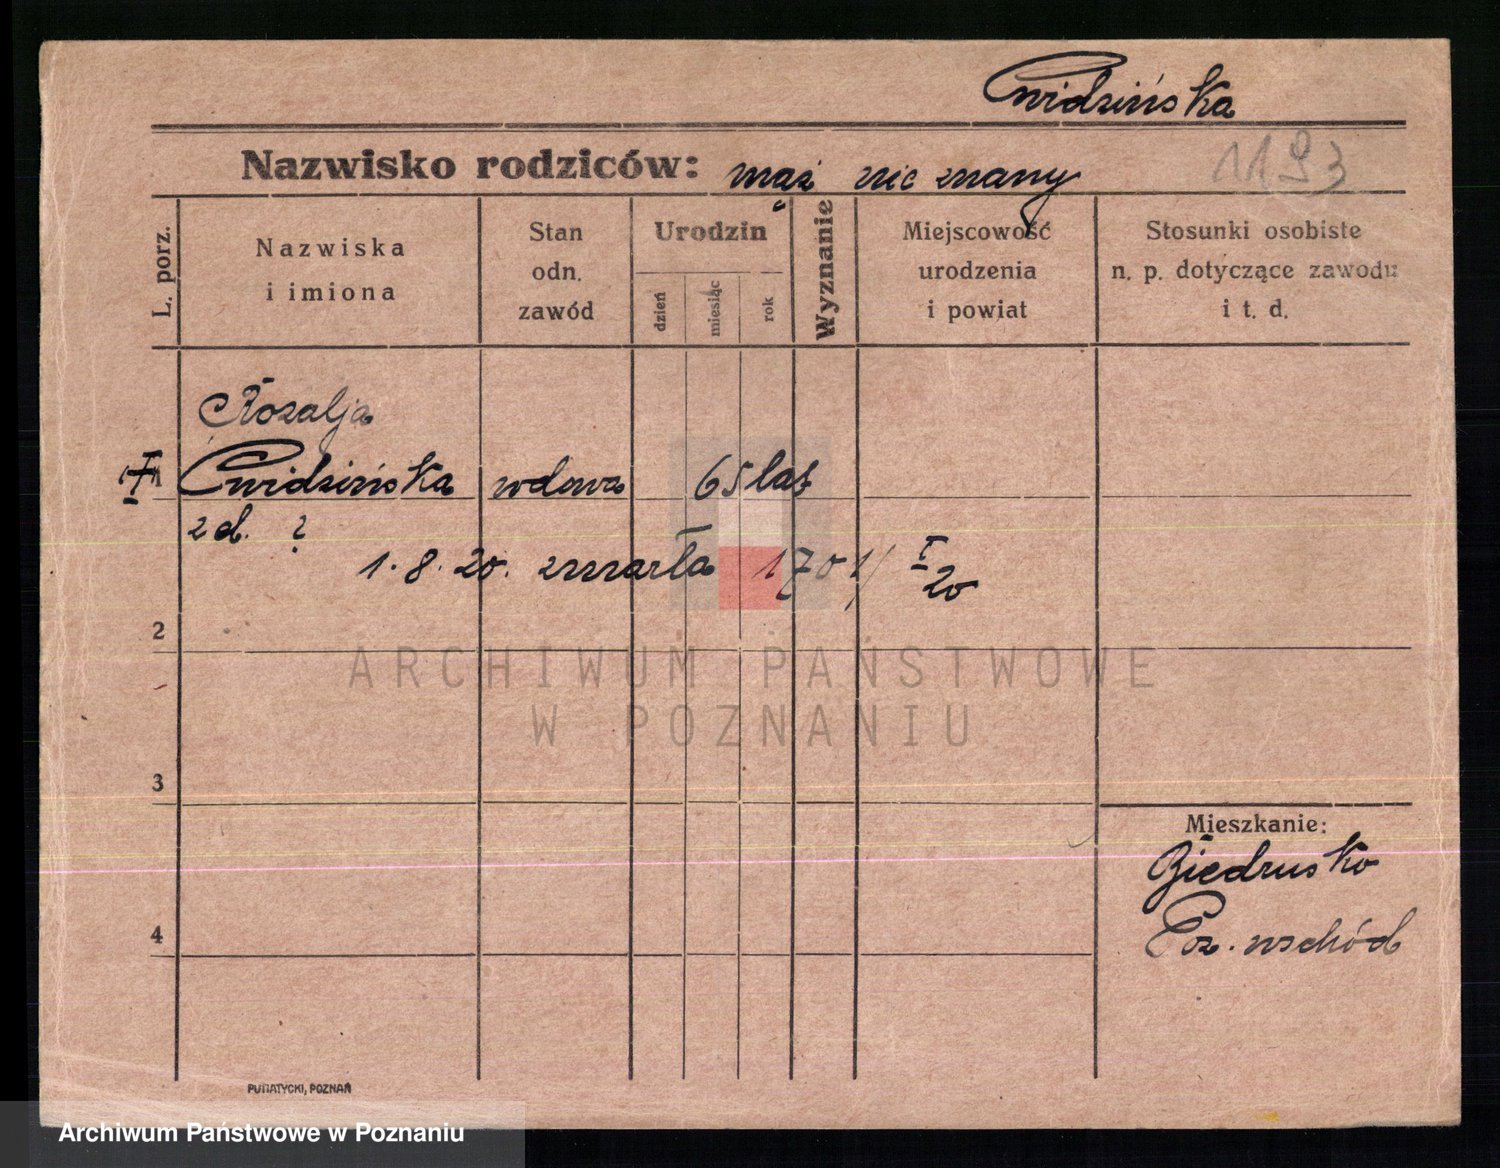 Cwidzińska
Nazwisko rodziców: mąż nie znany
1193
L. porz.
Nazwiska
i imiona
Stan
odn.
zawód
Urodzin
dzień
miesiąc
rok
Wyznanie
Miejscowość
urodzenia
i powiat
Stosunki osobiste
n. p. dotyczące zawodu
i t. d.
Rozalja
Cwidzińska wdowa 65 lat
zd. ?
1. 8. 20. zmarła 1701/I 20
2
ARCHIWUM PAŃSTWOWE
W POZNANIU
3
Mieszkanie:
Biedrusko
Poz. wschód
4
PUTIATYCKI, POZNAŃ
Archiwum Państwowe w Poznaniu